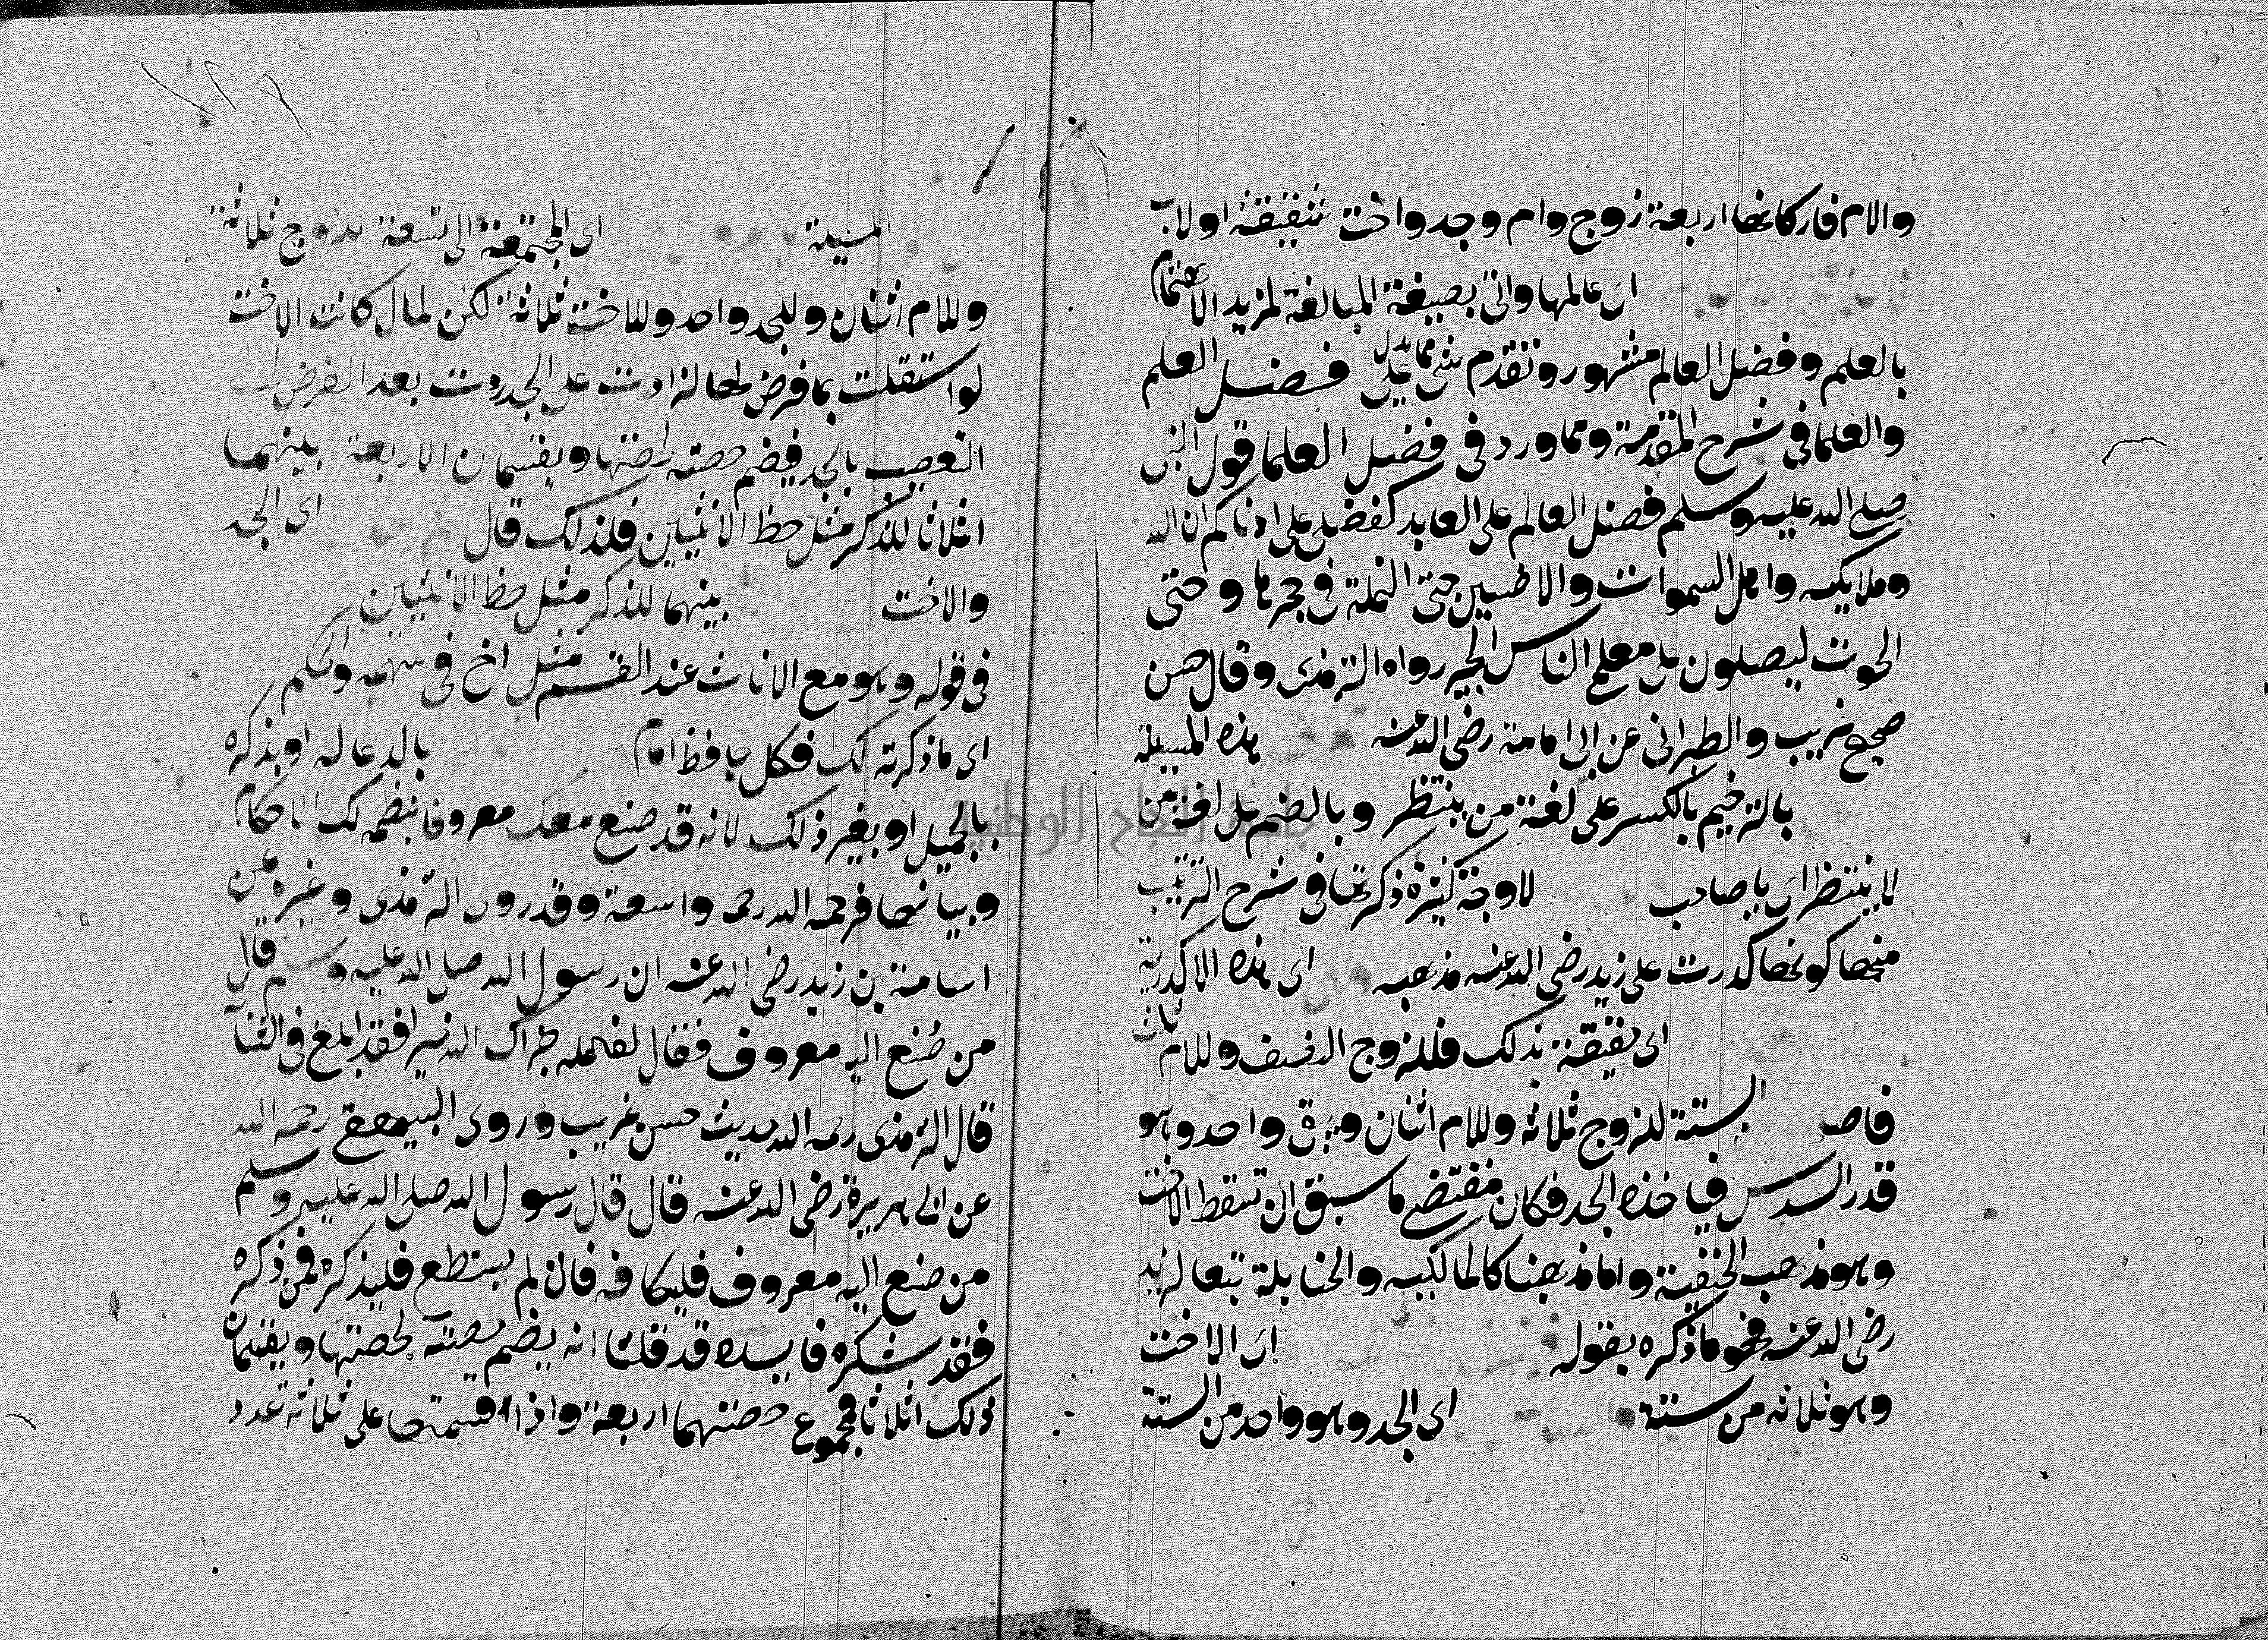 والام فاركانها اربعة زوج وام وجد واخت شقيقة اولاب
اى عالمها واتى بصيغة المبالغة لمزيد الاهتمام
بالعلم وفضل العالم مشهور وتقدم شى مما يدل على فضل العلم
والعلما فى شرح المقدمة ومما ورد فى فضل العلما قول النبى
صلى الله عليه وسلم فضل العالم على العابد كفضلى على ادناكم ان الله
وملايكته واهل السموات والارضين حتى النملة فى جحرها وحتى
الحوت ليصلون على معلم الناس الخير رواه الترمذى وقال حسن
صحيح غريب والطبرانى عن ابى امامة رضى الله عنه هذه المسيلة
بالترخيم بالكسر على لغة من ينتظر وبالضم على لغة من
لا ينتظر اى يا صاحب لاوجة كثيرة ذكرتها فى شرح الترتيب
منها كونها كدرت على زيد رضى الله عنه مذهبه اى هذه الاكدرية
اى حقيقة بذلك فللزوج النصف وللام ثلث
فاصل الستة للزوج ثلاثة وللام اثنان وبقى واحد وهو
قدر السدس فياخذه الجد فكان مقتضى ما سبق ان تسقط الاخت
وهو مذهب الحنفية واما مذهبنا كالمالكيه والحنابلة تبعا لزيد
رضى الله عنه فهو ما ذكره بقوله اى الاخت
وهو ثلاثه من ستة والستة اى الجد وهو واحد من الستة
المسيلة اى المجتمعة الى تسعة للزوج ثلاثة
وللام اثنان وللجد واحد وللاخت ثلاثة لكن لما كانت الاخت
لو استقلت بما فرض لها لزادت على الجد ردت بعد الفرض الى
التعصيب بالجد فيضم حصته لحصتها ويقتسمان الاربعة بينهما
اثلاثا للذكر مثل حظ الانثيين فلذلك قال اى الجد
والاخت بينهما للذكر مثل حظ الانثيين
فى قوله وهو مع الاناث عند القسم مثل اخ فى سهمه والحكم
اى ما ذكرته لك فكل حافظ امام بالدعا له او بذكره
بالجميل او بغير ذلك لانه قد صنع معك معروفا بنظمه لك الاحكام
وبيانها فرحمه الله رحمة واسعة وقد روى الترمذى وغيره عن
اسامة بن زيد رضى الله عنه ان رسول الله صلى الله عليه وسلم قال
من صُنع اليه معروف فقال لفاعله جزاك الله خيرا فقد ابلغ فى الثنآ
قال الترمذى رحمه الله حديث حسن غريب وروى البيهقى رحمه الله
عن ابى هريرة رضى الله عنه قال قال رسول الله صلى الله عليه وسلم
من صنع اليه معروف فليكافه فان لم يستطع فليذكره فمن ذكره
فقد شكره فايده قد قلنا انه يضم حصته لحصتها ويقتسمان
ذلك اثلاثا فمجموع حصتهما اربعة واذا قسمتها على ثلاثة عدد
جامعة النجاح الوطنية